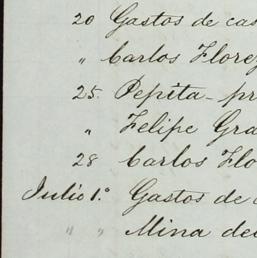 20 Gastos de cas
" Carlos Flore
25. Pepita pr
" Felipe Gra
28 Carlos Flo
Julio 1.º Gastos de
" " Mina de